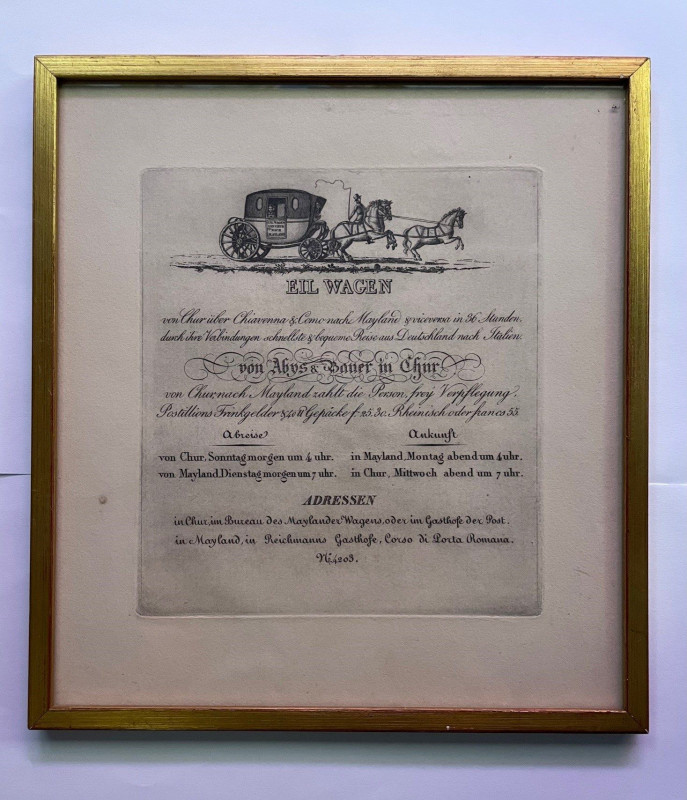 EIL WAGEN
von Chur über Chiavenna & Como nach Mayland & viceversa in 36 Stunden,
durch ihre Verbindungen schnellste & bequeme Reise aus Deutschland nach Italien.
von Abys & Bauer in Chur
von Chur nach Mayland zahlt die Person, frey Verpflegung,
Postillions Trinkgelder & 40 ℔ Gepäcke f. 25.30. Rheinisch oder francs 55.
Abreise Ankunft
von Chur, Sonntag morgen um 4 uhr. in Mayland, Montag abend um 4 uhr.
von Mayland, Dienstag morgen um 7 uhr. in Chur, Mittwoch abend um 7 uhr.
ADRESSEN
in Chur, im Bureau des Maylander Wagens, oder im Gasthofe der Post.
in Mayland, in Reichmanns Gasthofe, Corso di Porta Romana.
No. 4203.